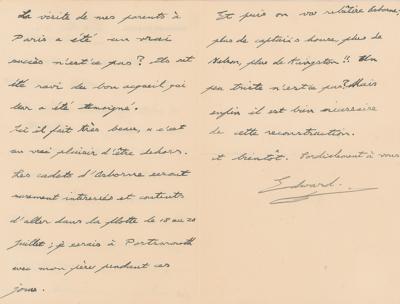 La visite de mes parents à
Paris a été un vrai
succès n'est-ce pas? Ils ont
été ravi du bon accueil qui
leur a été témoigné.
Ici il fait très beau, & c'est
un vrai plaisir d'être dehors.
Les cadets d'Osborne seront
surement intéressés et contents
d'aller dans la flotte le 18 au 20
juillet; je serais à Portsmouth
avec mon père pendant ces
jours.
Et puis on va rebâtire Osborne,
plus de captain's house, plus de
Nelson, plus de Kingston!! Un
peu triste n'est-ce pas? Mais
enfin il est bien nécessaire
de cette reconstruction.
et bientôt. Cordialement à vous
Edward.